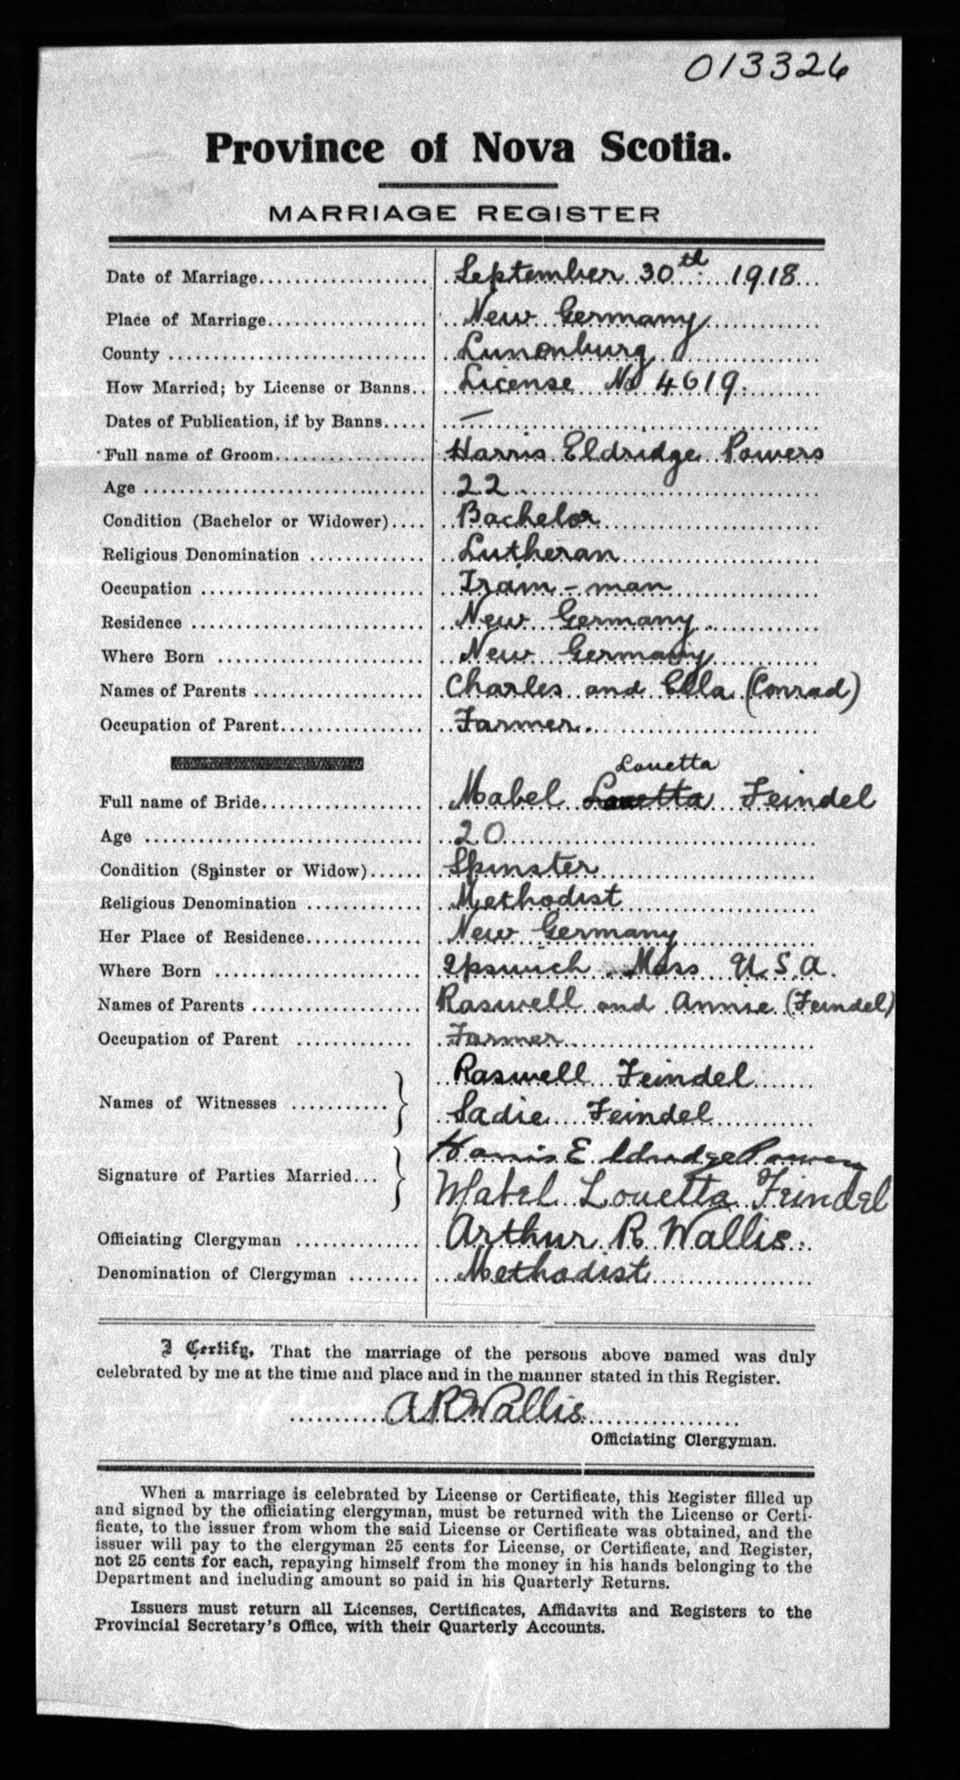 013326
Province of Nova Scotia.
MARRIAGE REGISTER
Date of Marriage................... September 30th 1918
Place of Marriage.................. New Germany
County ............................ Lunenburg
How Married; by License or Banns.. License No 4619.
Dates of Publication, if by Banns..... —
Full name of Groom................. Harris Eldridge Powers
Age ............................... 22
Condition (Bachelor or Widower).... Bachelor
Religious Denomination ............ Lutheran
Occupation ........................ Train-man
Residence ......................... New Germany
Where Born ........................ New Germany
Names of Parents .................. Charles and Ella (Conrad)
Occupation of Parent............... Farmer.
Louetta
Full name of Bride................. Mabel Louetta Feindel
Age ............................... 20
Condition (Spinster or Widow)...... Spinster
Religious Denomination ............ Methodist
Her Place of Residence............. New Germany
Where Born ........................ Ipswich Mass U.S.A.
Names of Parents .................. Raswell and Annie (Feindel)
Occupation of Parent .............. Farmer
Raswell Feindel
Names of Witnesses ...........
Sadie Feindel
Harris Eldridge Powers
Signature of Parties Married...
Mabel Louetta Feindel
Officiating Clergyman ............. Arthur R. Wallis.
Denomination of Clergyman ........ Methodist
I Certify, That the marriage of the persons above named was duly
celebrated by me at the time and place and in the manner stated in this Register.
A R Wallis
Officiating Clergyman.
When a marriage is celebrated by License or Certificate, this Register filled up
and signed by the officiating clergyman, must be returned with the License or Certi-
ficate, to the issuer from whom the said License or Certificate was obtained, and the
issuer will pay to the clergyman 25 cents for License, or Certificate, and Register,
not 25 cents for each, repaying himself from the money in his hands belonging to the
Department and including amount so paid in his Quarterly Returns.
Issuers must return all Licenses, Certificates, Affidavits and Registers to the
Provincial Secretary's Office, with their Quarterly Accounts.